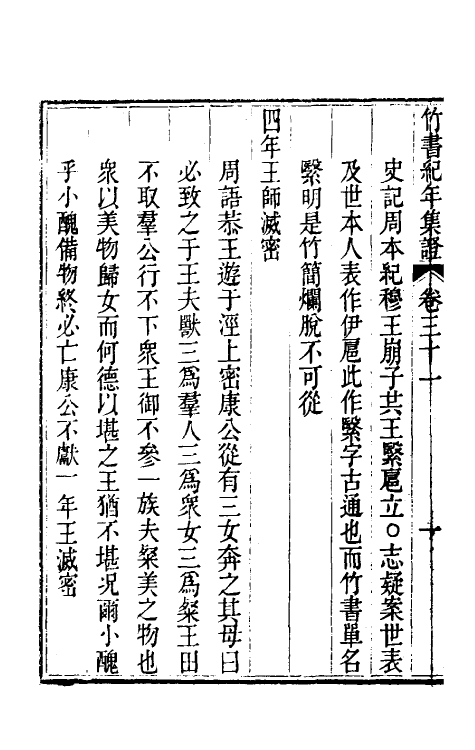 竹書紀年集證 卷三十一 十
史記周本紀穆王崩子共王繄扈立○志疑案世表
及世本人表作伊扈此作繄字古通也而竹書單名
繄明是竹簡爛脫不可從
四年王師滅密
周語恭王遊于涇上密康公從有三女奔之其母曰
必致之于王夫獸三爲羣人三爲衆女三爲粲王田
不取羣公行不下衆王御不參一族夫粲美之物也
衆以美物歸女而何德以堪之王猶不堪况爾小醜
乎小醜備物終必亡康公不獻一年王滅密